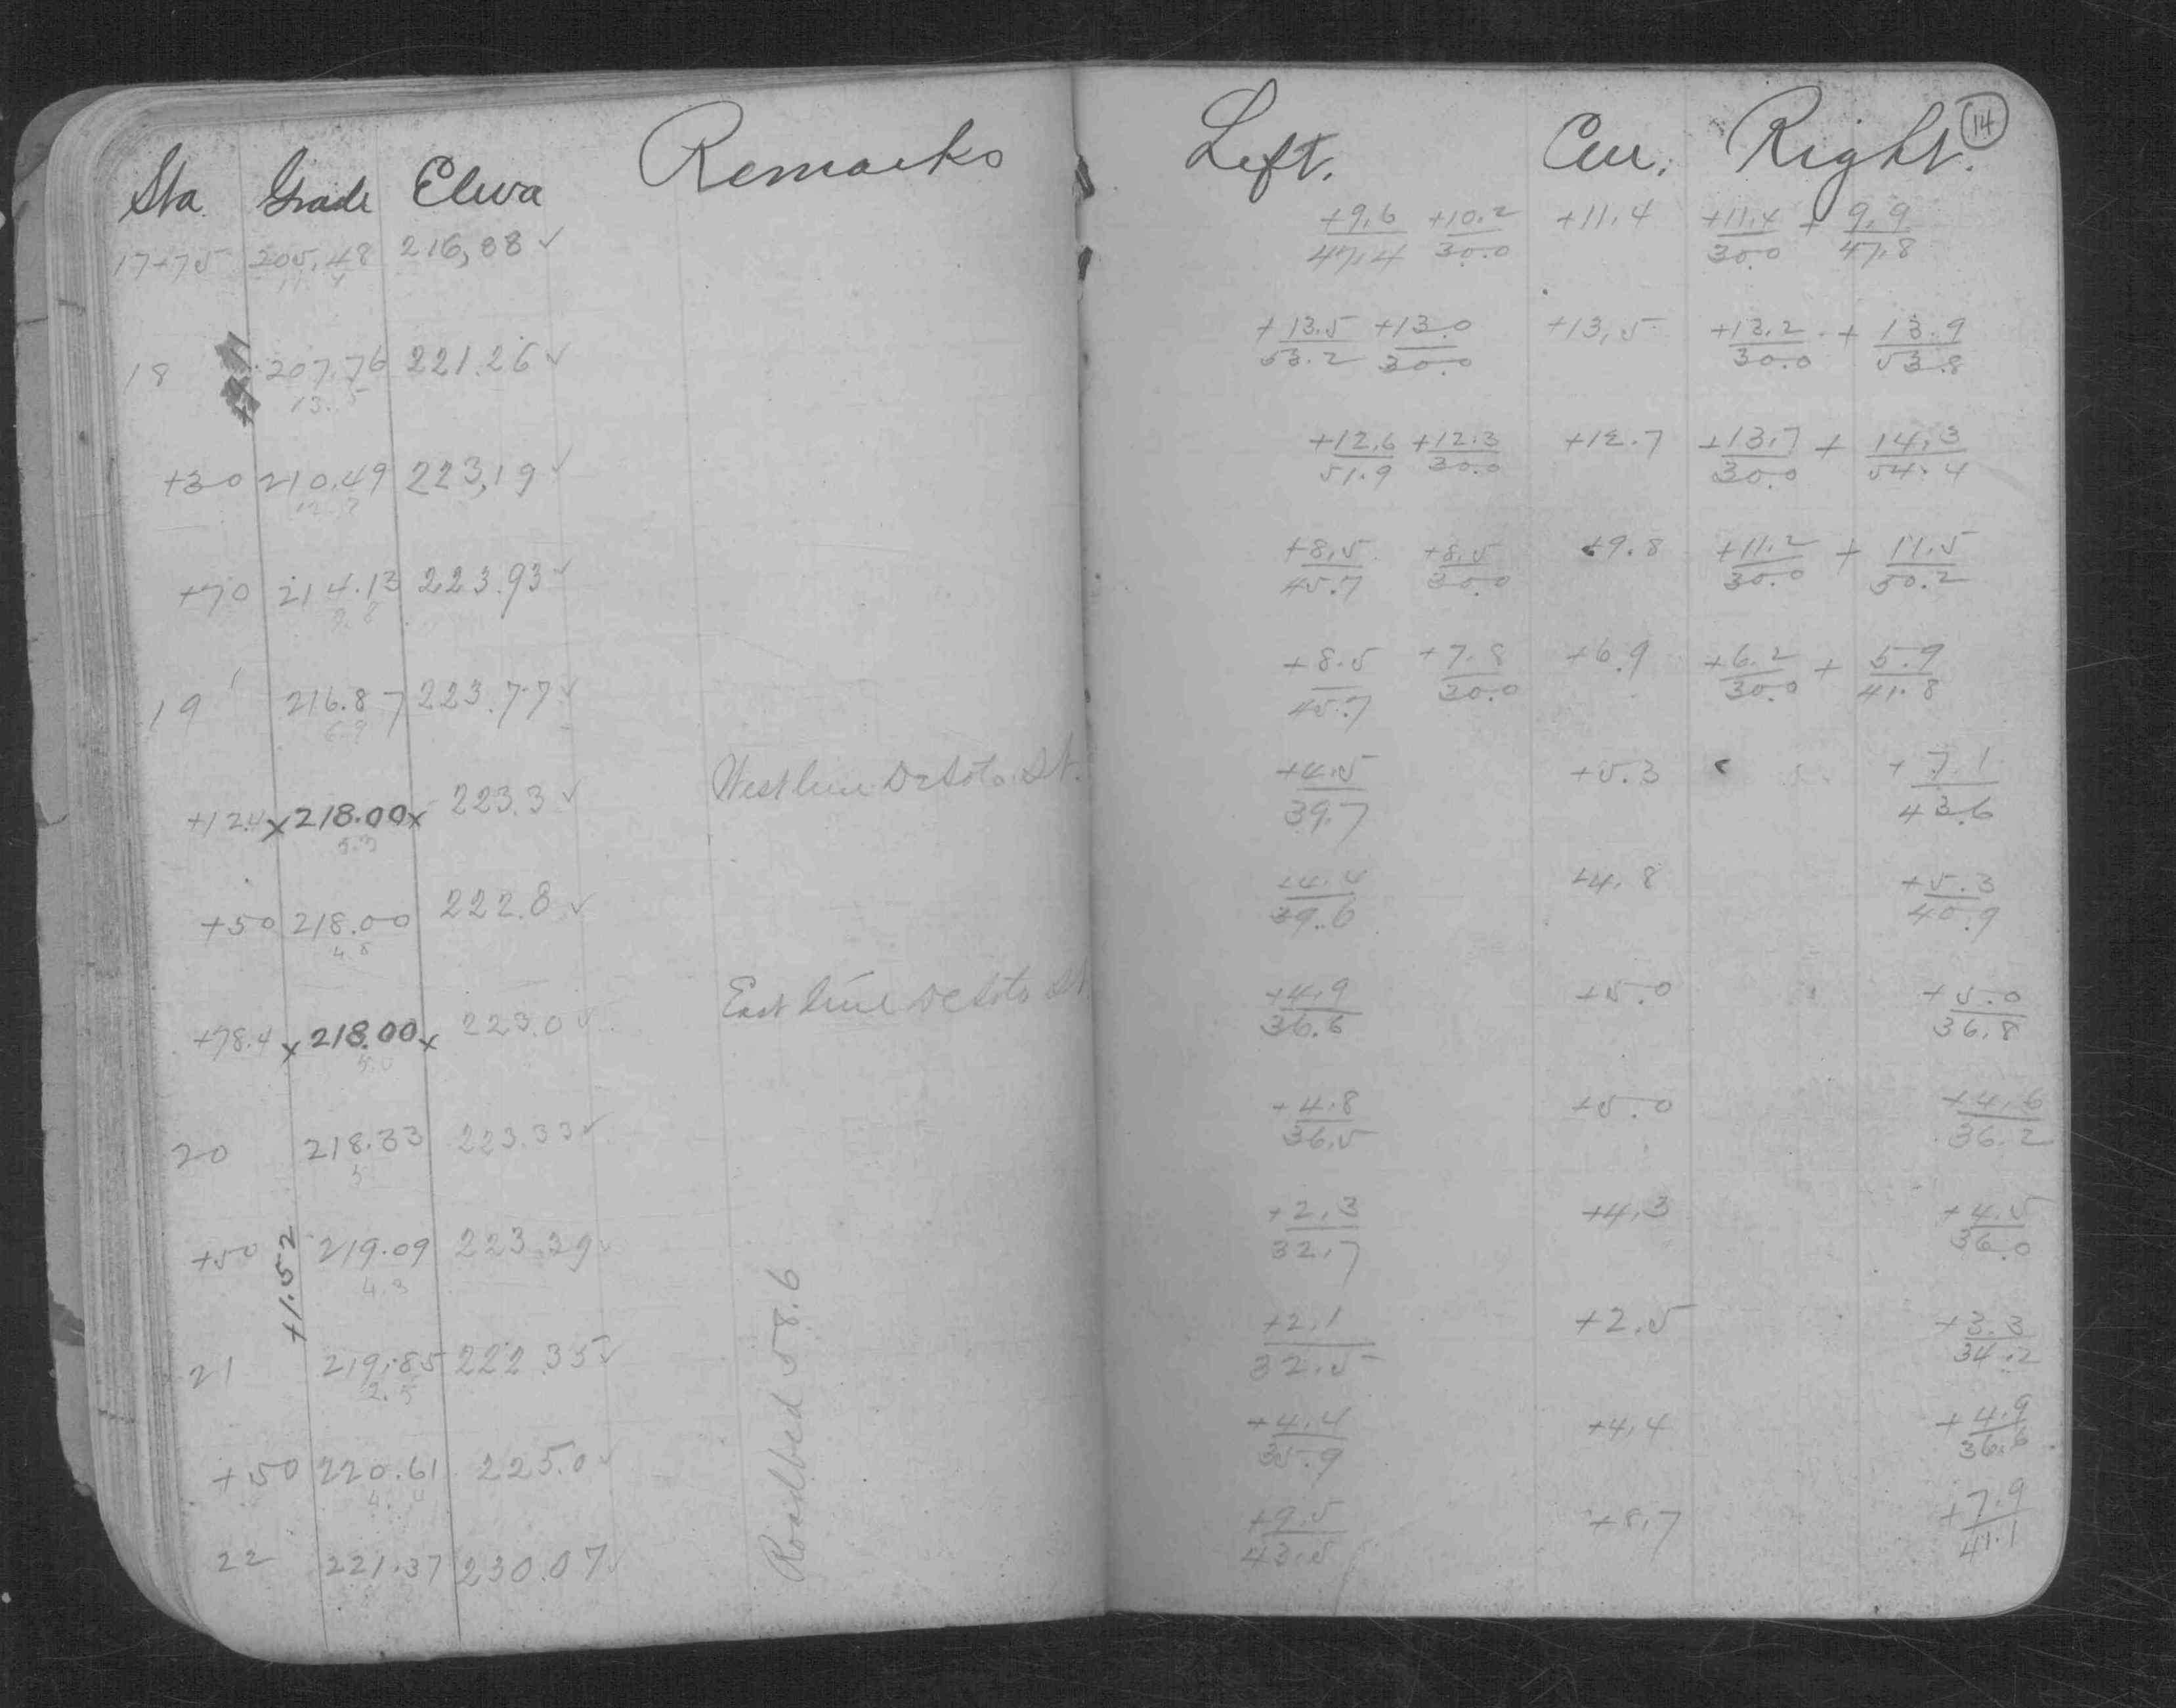 Sta. Grade Eleva Remarks Left. Cen. Right. 14
17+75 205.48 216.88 ✓ +9.6 +10.2 +11.4 +11.4 + 9.9
11.4 47.4 30.0 30.0 47.8
18 207.76 221.26 ✓ +13.5 +13.0 +13.5 +13.2 + 13.9
13.5 53.2 30.0 30.0 53.8
+30 210.49 223.19 ✓ +12.6 +12.3 +12.7 +13.7 + 14.3
12.7 51.9 30.0 30.0 54.4
+70 214.13 223.93 ✓ +8.5 +8.5 +9.8 +11.2 + 11.5
9.8 45.7 30.0 30.0 50.2
19 216.87 223.77 ✓ +8.5 +7.8 +6.9 +6.2 + 5.9
6.9 45.7 30.0 30.0 41.8
+12.4 x 218.00 x 223.3 ✓ West line DeSoto St. +4.5 +5.3 +7.1
5.3 39.7 43.6
+50 218.00 222.8 ✓ +4.4 +4.8 +5.3
4.8 39.6 40.9
+78.4 x 218.00 x 223.0 ✓ East line DeSoto St. +4.9 +5.0 +5.0
5.0 36.6 36.8
20 218.33 223.33 ✓ +4.8 +5.0 +4.6
5 36.5 36.2
+50 219.09 223.39 ✓ +2.3 +4.3 +4.5
4.3 32.7 36.0
+1.52
21 219.85 222.35 ✓ +2.1 +2.5 +3.3
2.5 32.5 34.2
Roadbed 58.6
+50 220.61 225.0 ✓ +4.4 +4.4 +4.9
4.4 35.9 36.6
22 221.37 230.07 ✓ +9.5 +8.7 +7.9
43.5 41.1